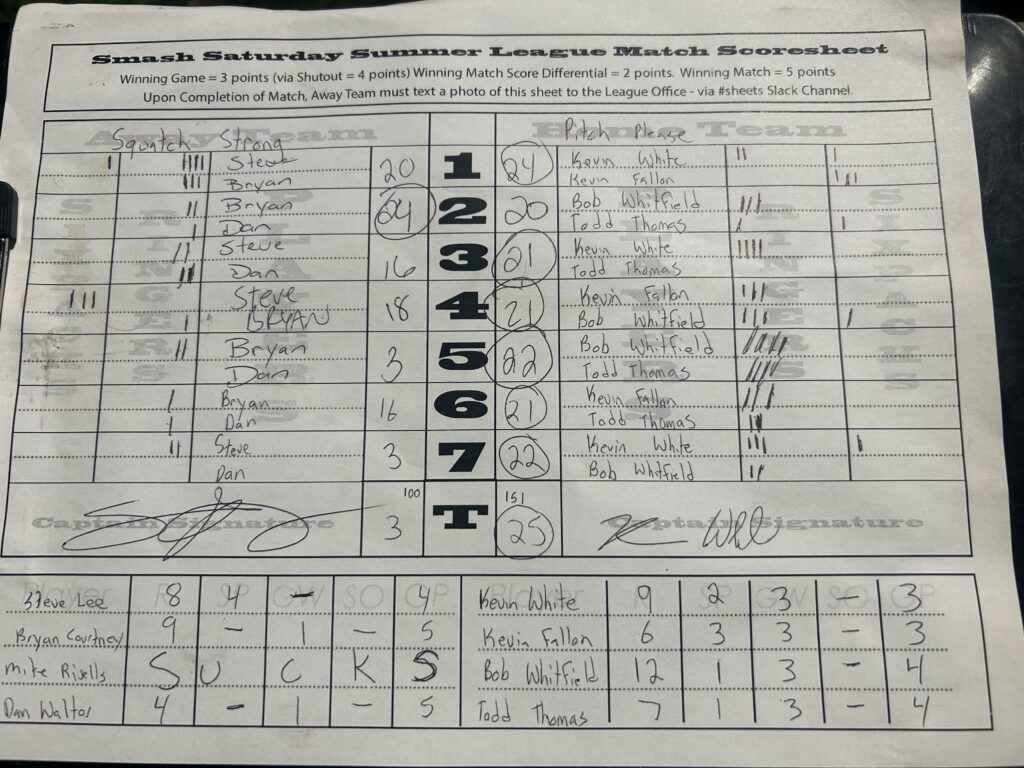 Smash Saturday Summer League Match Scoresheet
Winning Game = 3 points (via Shutout = 4 points) Winning Match Score Differential = 2 points. Winning Match = 5 points
Upon Completion of Match, Away Team must text a photo of this sheet to the League Office - via #sheets Slack Channel.
Away Team Home Team
Squatch Strong Pitch Please
Steve 20 1 24 Kevin White
Bryan Kevin Fallon
Bryan 24 2 20 Bob Whitfield
Dan Todd Thomas
Steve 16 3 21 Kevin White
Dan Todd Thomas
Steve 18 4 21 Kevin Fallon
BRYAN Bob Whitfield
Bryan 3 5 22 Bob Whitfield
Dan Todd Thomas
Bryan 16 6 21 Kevin Fallon
Dan Todd Thomas
Steve 3 7 22 Kevin White
Dan Bob Whitfield
100 151
Captain Signature 3 T 25 Captain Signature
Player R SP GW SO GP Player R SP GW SO GP
Steve Lee 8 4 - 4 Kevin White 9 2 3 - 3
Bryan Courtney 9 - 1 - 5 Kevin Fallon 6 3 3 - 3
Mike Risells S U C K S Bob Whitfield 12 1 3 - 4
Dan Waltos 4 - 1 - 5 Todd Thomas 7 1 3 - 4